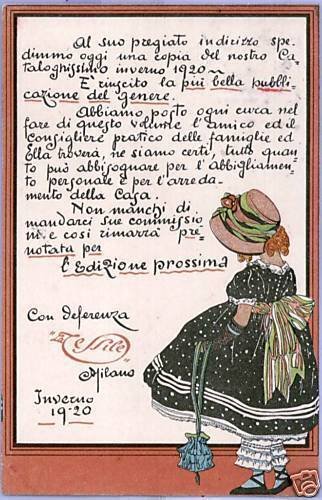 Al suo pregiato indirizzo spe-
dimmo oggi una copia del nostro Ca-
taloghissimo inverno 1920~
E' riuscito la più bella pubbli-
cazione del genere.
Abbiamo posto ogni cura nel
fare di questo volume l'amico ed il
Consigliere pratico delle famiglie ed
Ella troverà, ne siamo certi, tutto quan-
to può abbisognare per l'abbigliamen-
to personale e per l'arreda-
mento della Casa.
Non manchi di
mandarci sue commissio
ni e così rimarrà pre-
notata per
l'Edizione prossima
Con deferenza
"La Tessile"
Milano
Inverno
19-20